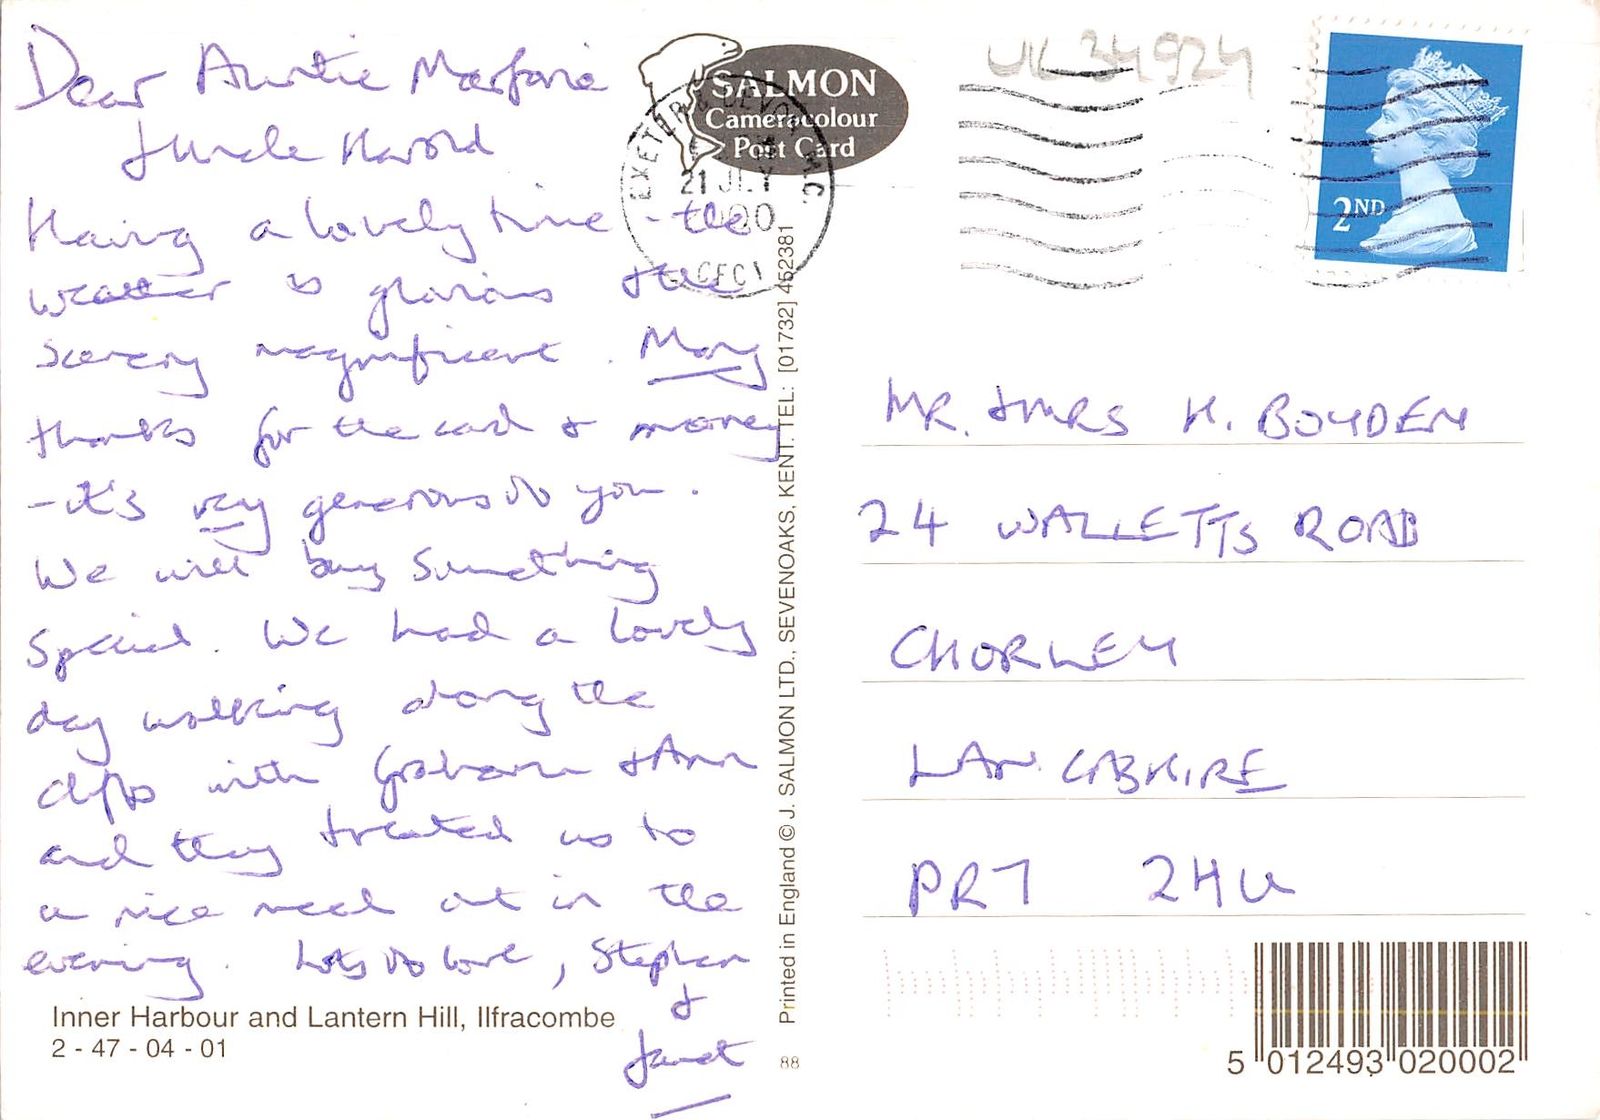 Dear Auntie Marjorie
& Uncle Harold
Having a lovely time - the
weather is glorious & the
scenery magnificent. Many
thanks for the card & money
- it's very generous of you.
We will buy something
special. We had a lovely
day walking along the
cliffs with Graham & Ann
and they treated us to
a nice meal out in the
evening. Lots of love, Stephen
&
Janet
Inner Harbour and Lantern Hill, Ilfracombe
2 - 47 - 04 - 01
SALMON
Cameracolour
Post Card
EXETER & DEVON
21 JLY
Printed in England © J. SALMON LTD., SEVENOAKS, KENT. TEL: [01732] 452381
88
UK 34924
2ND
MR. & MRS H. BOYDEN
24 WALLETTS ROAD
CHORLEY
LANCASHIRE
PR7 2HU
5 012493 020002